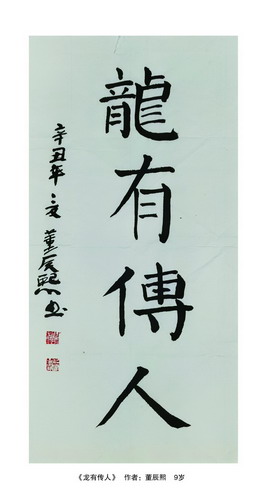 龍有傳人
辛丑年 董辰熙书
《龙有传人》 作者：董辰熙 9岁